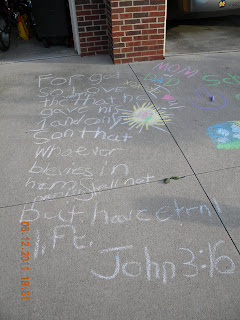 For god
so loved
tht that h
gave his
only
Son that
Whoever
blevies in
him shall not
But have etrnl
life.
John 3:16
MOM